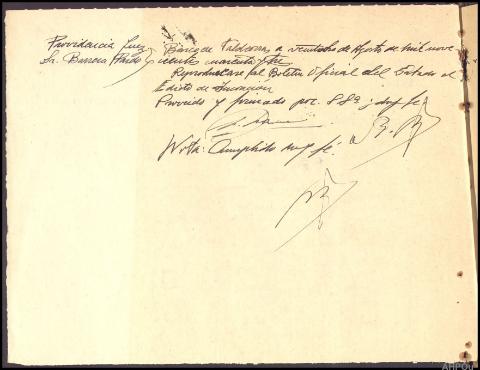 Providencia Juez
Sr. Barrera Pardo
Barco de Valdeorras a veintidos de Agosto de mil nove
cientos cuarenta y tre
Reproduzcase al Boletín Oficial del Estado el
Edicto de Incoacion
Proveido y firmado por S. Sª; doy fe
Nota: Cumplido doy fe.
AHPOU